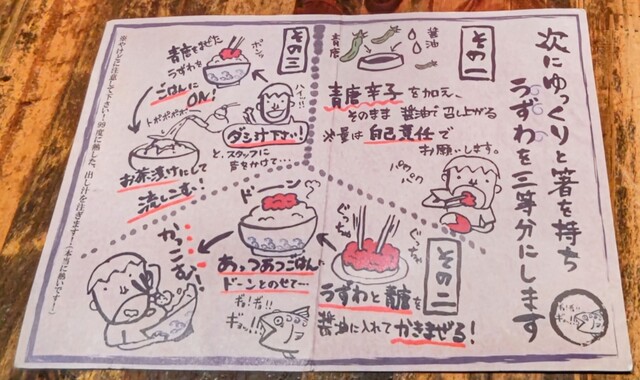 次にゆっくりと箸を持ち
うずわを三等分にします
その一
醤油
青唐
青唐辛子を加え、
そのまま醤油で召し上がる
※量は自己責任で
お願いします。
パク
パク
その二
うずわと青唐を
醤油に入れてかきまぜる!
ぐっちゃ
ぐっちゃ
ドーン
あっつあつごはんに
ドーンとのせて…
かっこむ!
ギョ!ギョ!!
ギョ…!!
その三
青唐をまぜた
うずわを
ポン。
ごはんに
ON!
ハイ…!!
ダシ汁下さい!
と、スタッフに
声をかけて…
トポポポポ…
お茶漬けにして
流しこむ!
※やけどに注意して下さい!99度に熱した、出し汁を注ぎます!(本当に熱いです!)